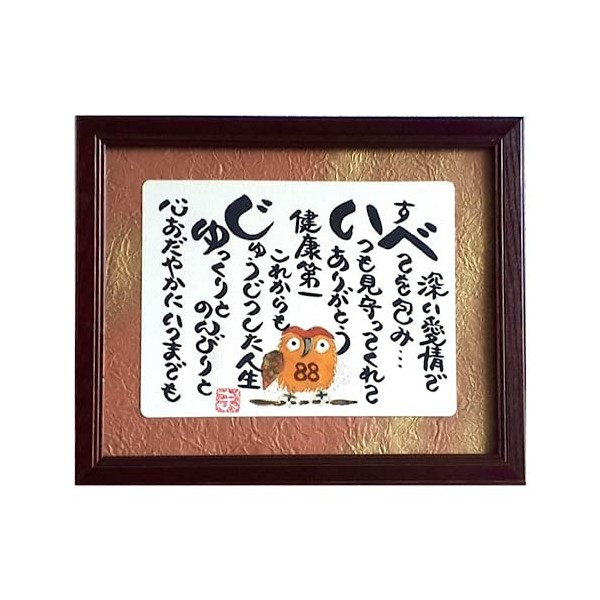 深い愛情で
すべてを包み…
いつも見守ってくれて
ありがとう
健康第一
これからも
じゅうじつした人生
ゆっくりと
のんびりと
心おだやかにいつまでも
88